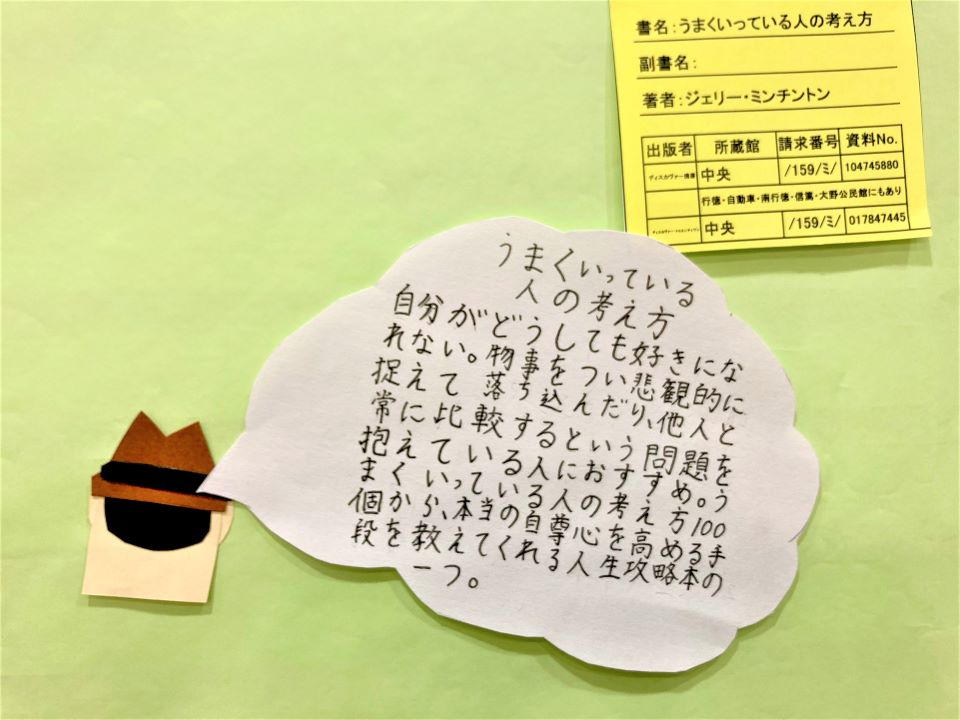 書名:うまくいっている人の考え方
副書名:
著者:ジェリー・ミンチントン
出版者 所蔵館 請求番号 資料No.
ディスカヴァー携書 中央 /159/ミ/ 104745880
行徳・自動車・南行徳・信篤・大野公民館にもあり
中央 /159/ミ/ 017847445
うまくいっている
人の考え方
自分がどうしても好きにな
れない。物事をつい悲観的に
捉えて落ち込んだり、他人と
常に比較するという問題を
抱えている人におすすめ。う
まくいっている人の考え方100
個から、本当の自尊心を高める手
段を教えてくれる人生攻略本の
一つ。